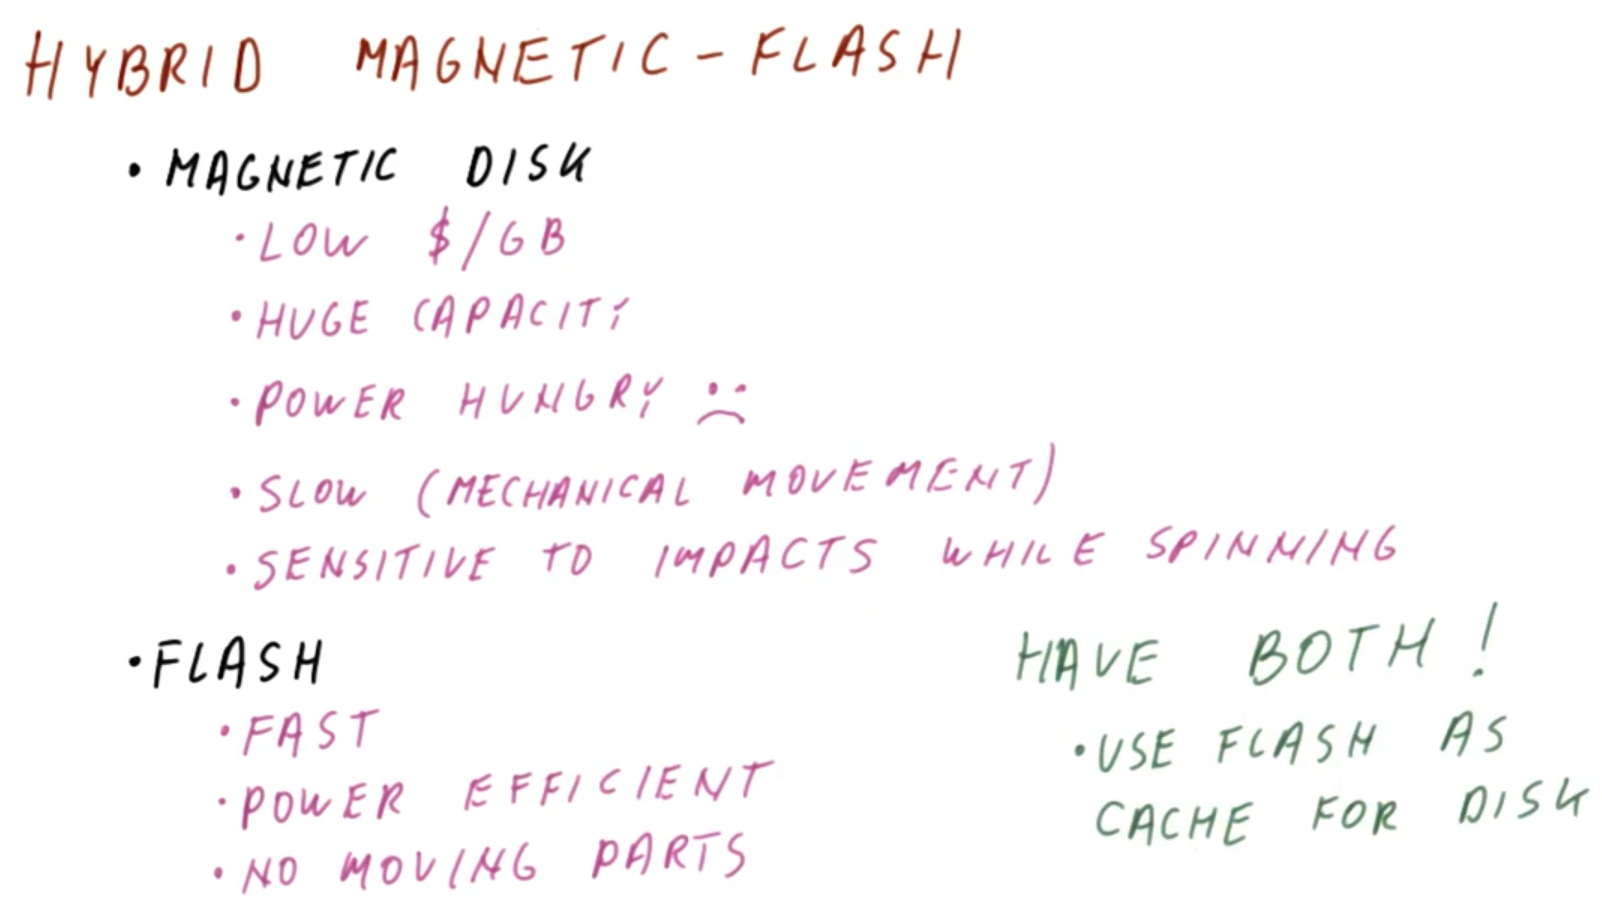 HYBRID MAGNETIC-FLASH
• MAGNETIC DISK
• LOW $/GB
• HUGE CAPACITY
• POWER HUNGRY ☹
• SLOW (MECHANICAL MOVEMENT)
• SENSITIVE TO IMPACTS WHILE SPINNING
• FLASH
• FAST
• POWER EFFICIENT
• NO MOVING PARTS
HAVE BOTH!
• USE FLASH AS
CACHE FOR DISK